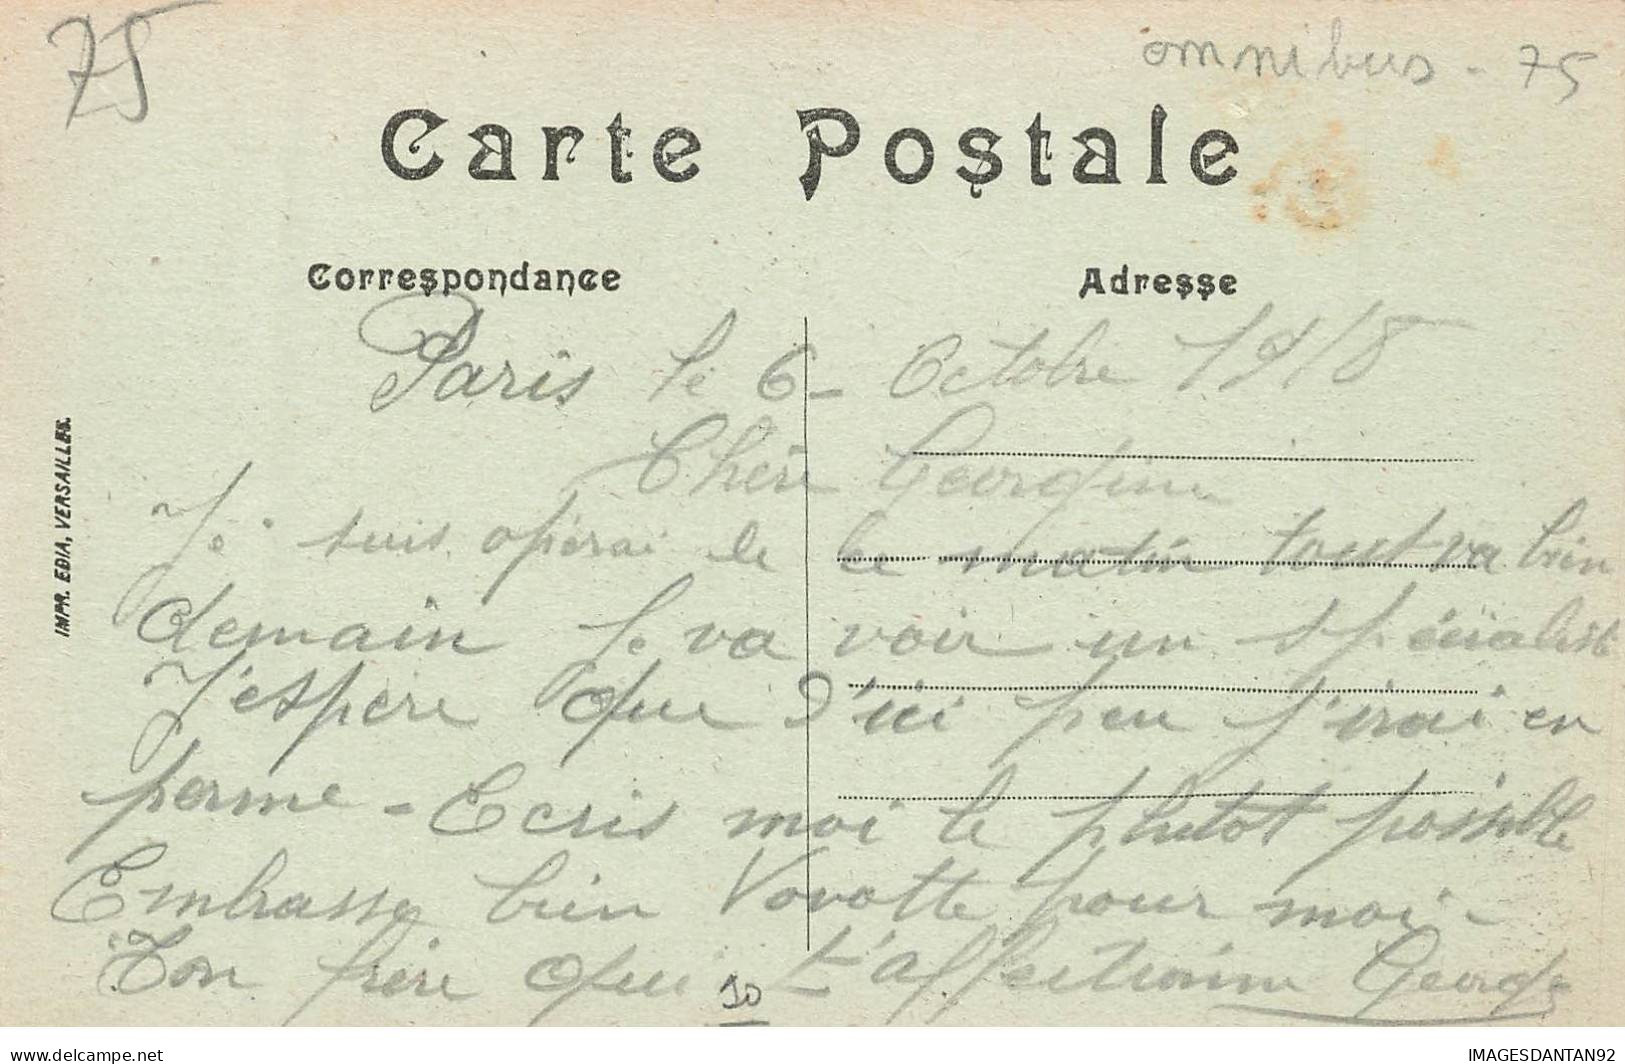 75
omnibus - 75
Carte Postale
Correspondance
Adresse
Paris le 6 - Octobre 1918
Chère Georgine
Je suis opérai de ce matin tout va bien
demain je va voir un spécialiste
J'espère que d'ici peu j'irai en
perme - Ecris moi le plutot possible
Embrasse bien Vovotte pour moi -
Ton frère qui t'affectionne George
10
IMPR. EDIA, VERSAILLES.
www.delcampe.net
IMAGESDANTAN92